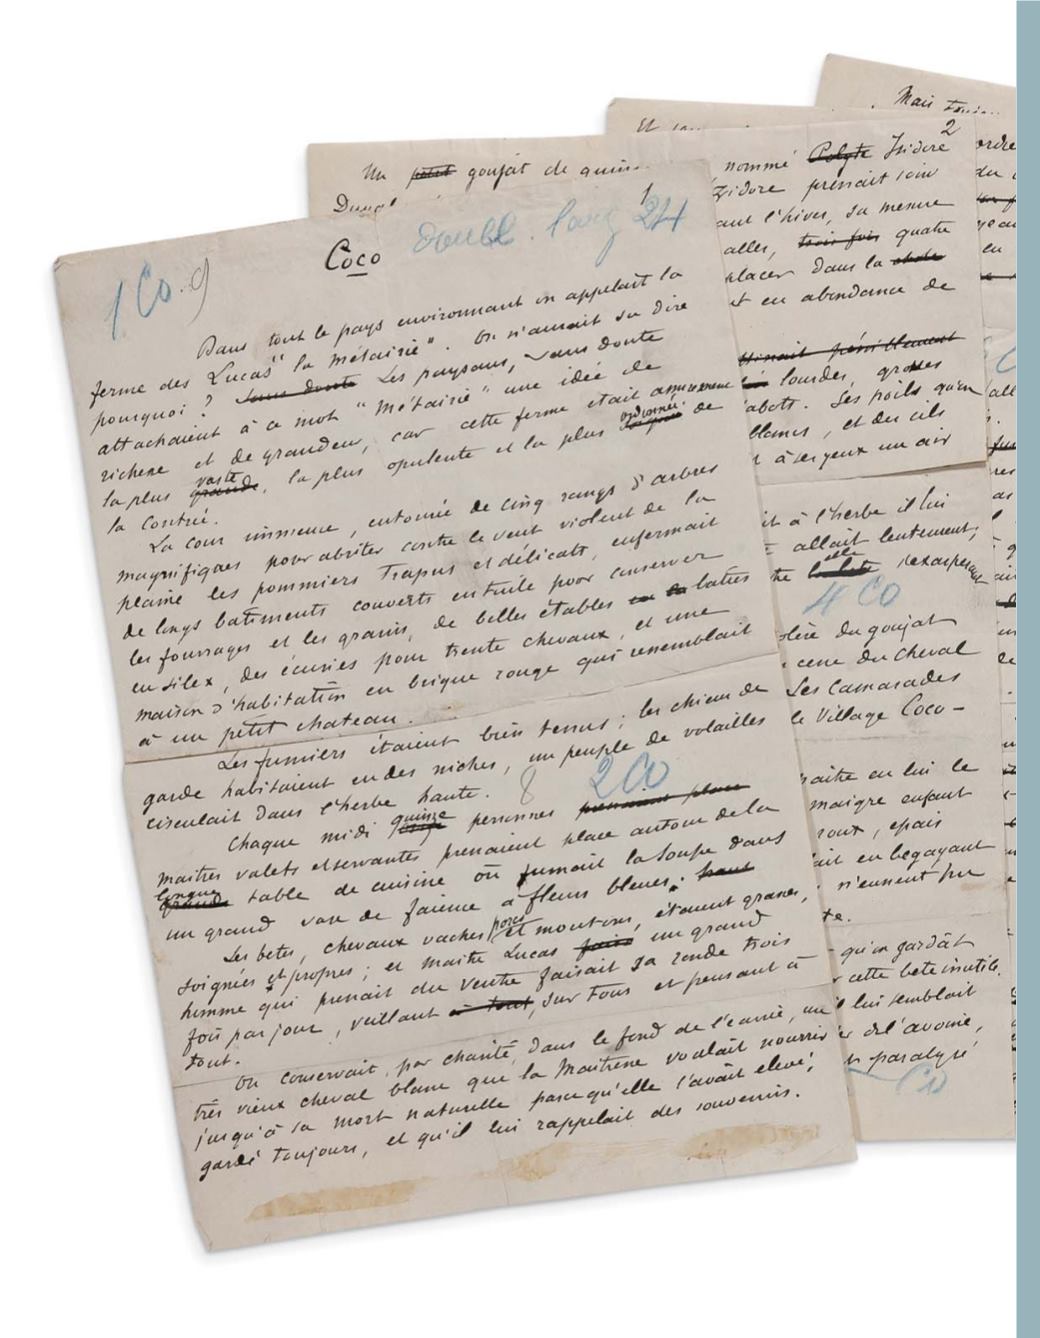 1
Coco
doubl. 24
1 Co. 9
Dans tout le pays environnant on appelait la
ferme des Lucas "la Métairie". On n'aurait su dire
pourquoi ? Sans doute Les paysans, sans doute
attachaient à ce mot "Métairie" une idée de
richesse et de grandeur, car cette ferme était assurément
la plus grande vaste, la plus opulente et la plus ordonnée de
la contrée.
La cour immense, entourée de cinq rangs d'arbres
magnifiques pour abriter contre le vent violent de la
plaine les pommiers trapus et délicats, enfermait
de longs batiments couverts en tuile pour conserver
les fourrages et les grains, de belles étables en la baties
en silex, des écuries pour trente chevaux, et une
maison d'habitation en brique rouge qui ressemblait
à un petit chateau.
Les fumiers étaient bien tenus ; les chiens de
garde habitaient en des niches, un peuple de volailles
circulait dans l'herbe haute. 8 2 Co
Chaque midi quinze personnes prenaient place
maitres valets et servantes prenaient place autour de la
grande longue table de cuisine où fumait la soupe dans
un grand vase de faïence à fleurs bleues.
Les bêtes, chevaux vaches porcs et moutons, étaient grasses,
soignées et propres ; et maitre Lucas un grand
homme qui prenait du ventre faisait sa ronde trois
fois par jour, veillant à tout, sur tous et pensant à
tout.
On conservait, par charité, dans le fond de l'écurie, un
très vieux cheval blanc que la Maitresse voulait nourrir
jusqu'à sa mort naturelle parcequ'elle l'avait élevé,
gardé toujours, et qu'il lui rappelait des souvenirs.
Un petit goujat de quin
2
nommé Polyte Isidore
Isidore prenait soin
ant l'hiver, sa mesure
alles, trois fois quatre
placer dans la
t en abondance de
trainait péniblement
lourdes, grosses
abots. Ses poils qu'on
blancs, et des cils
à ses yeux un air
Et
it à l'herbe il lui
allait lentement,
elle s'exaspérant
4 Co
olère du goujat
cene du cheval
Les Camarades
le Village Coco-
naitre en lui le
maigre enfant
roux, épais
ait en bégayant
n'eussent pu
te.
qu'on gardât
cette bete inutile.
il lui semblait
de l'avoine,
paralysé
Co
Mais